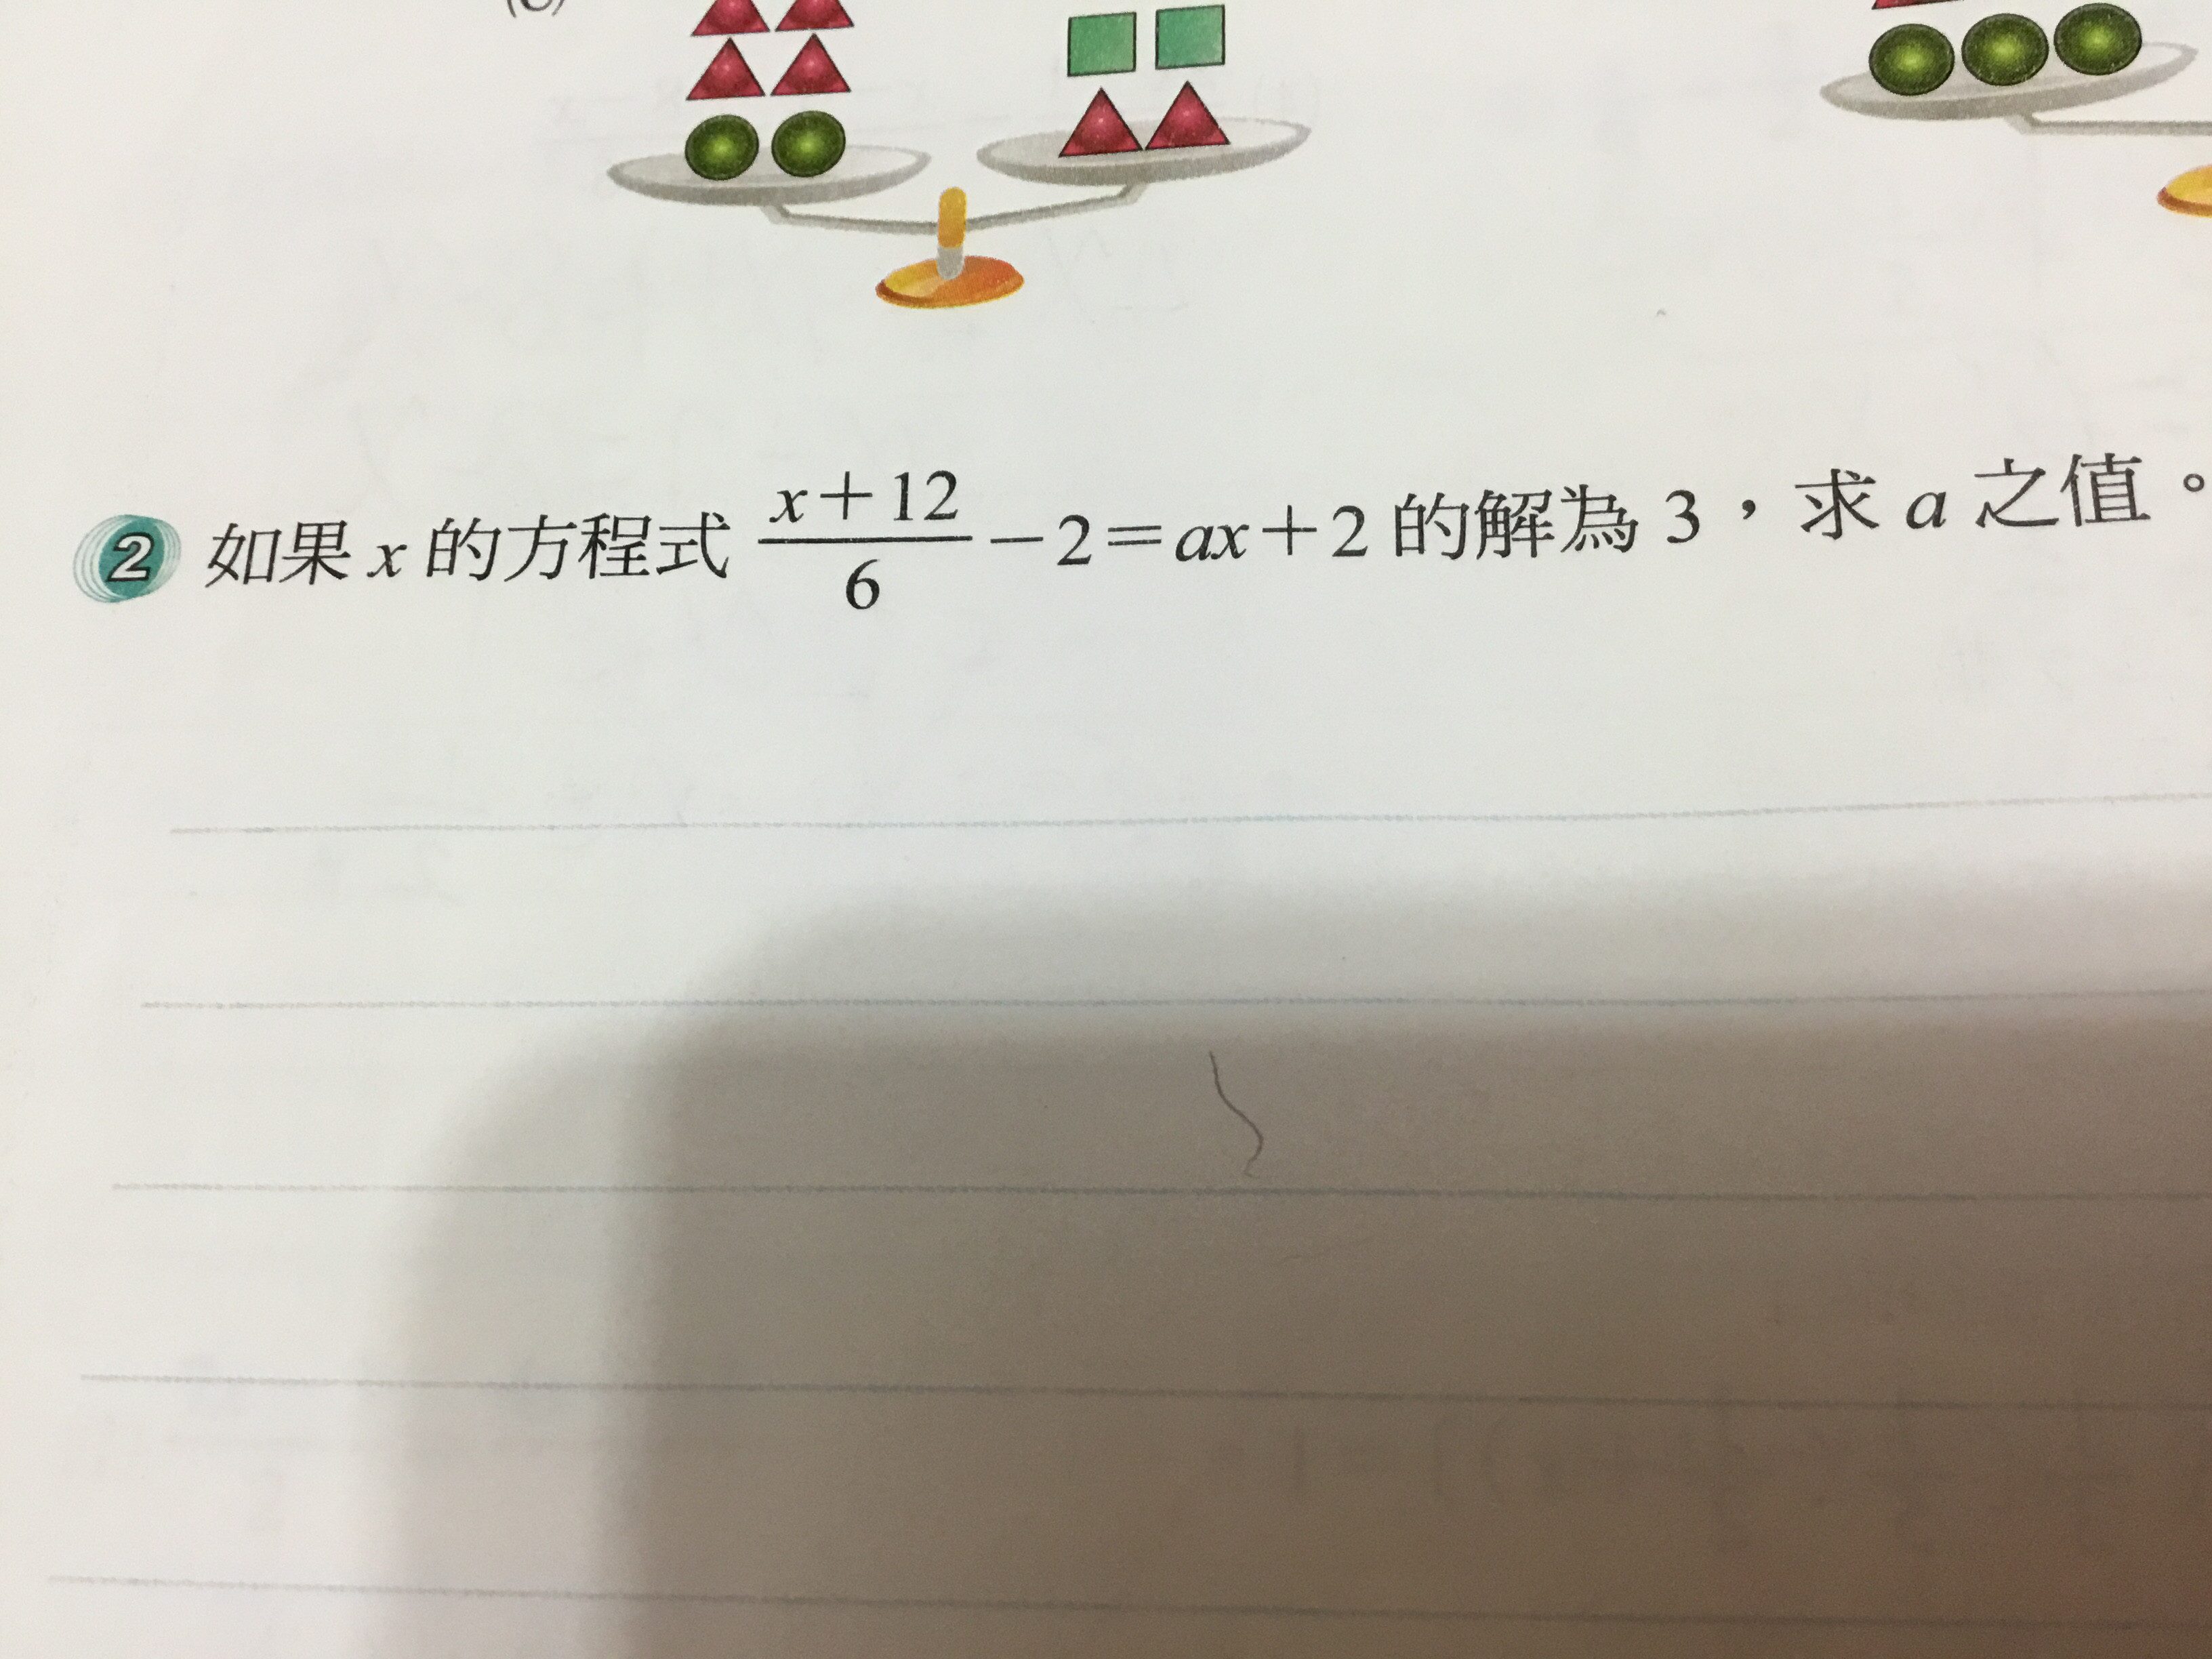 2 如果 x 的方程式 \frac{x+12}{6}－2＝ax＋2 的解為 3，求 a 之值。